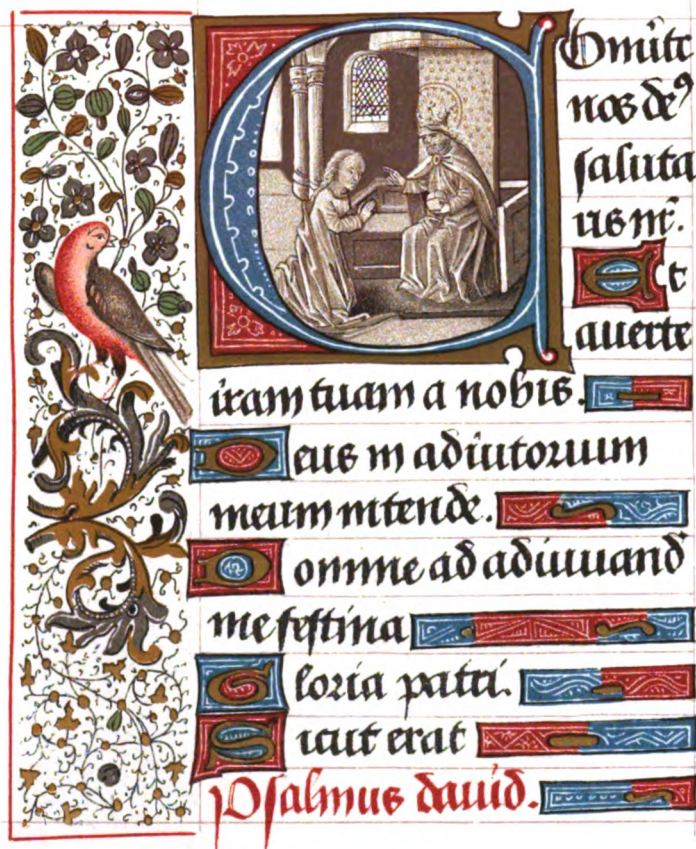 COnūte
nos deꝰ
saluta
ris nr̄.
Et
auerte
iram tuam a nobis.
Deus in adiutorium
meum intende.
Domine ad adiuuand̕
me festina
Gloria patri.
Sicut erat
Psalmus dauid.